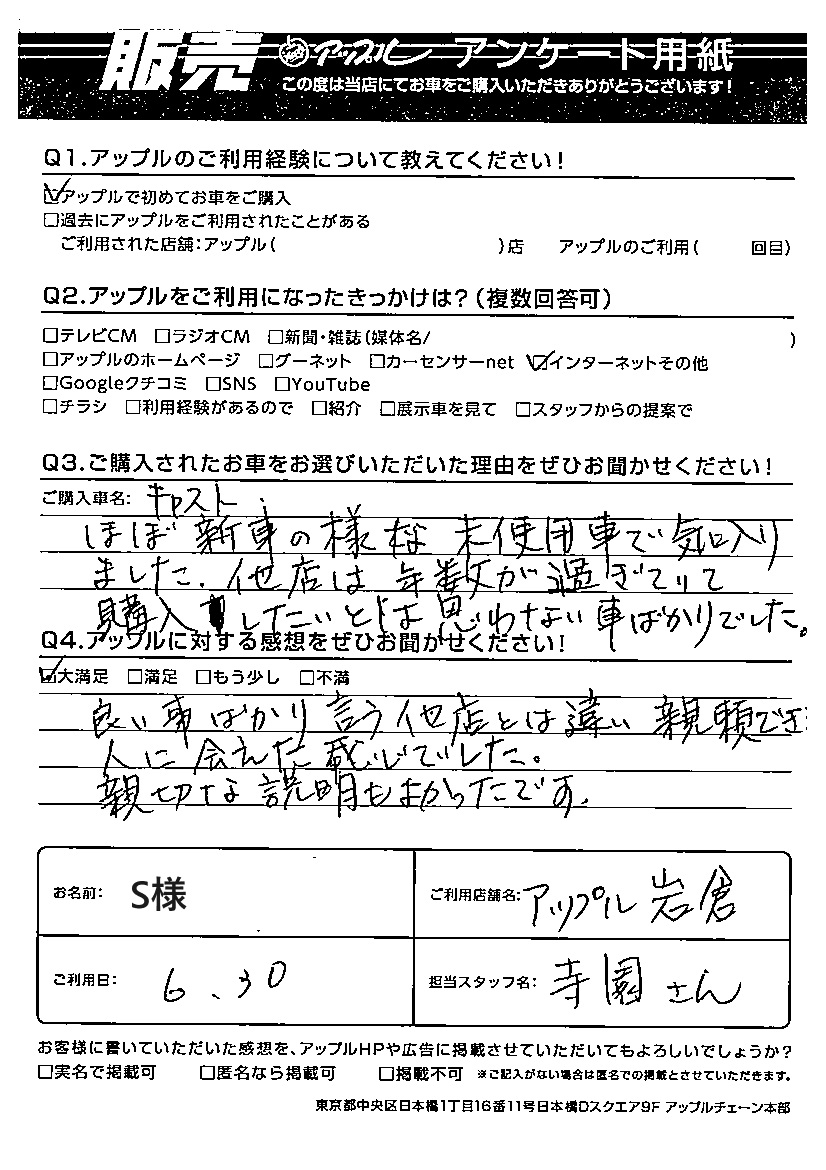 販売 アップル アンケート用紙
この度は当店にてお車をご購入いただきありがとうございます!
Q1.アップルのご利用経験について教えてください!
☑アップルで初めてお車をご購入
□過去にアップルをご利用されたことがある
ご利用された店舗:アップル( )店 アップルのご利用( 回目)
Q2.アップルをご利用になったきっかけは?(複数回答可)
□テレビCM □ラジオCM □新聞・雑誌(媒体名/ )
□アップルのホームページ □グーネット □カーセンサーnet ☑インターネットその他
□Googleクチコミ □SNS □YouTube
□チラシ □利用経験があるので □紹介 □展示車を見て □スタッフからの提案で
Q3.ご購入されたお車をお選びいただいた理由をぜひお聞かせください!
ご購入車名: キャスト.
ほぼ新車の様な 未使用車で気に入り
ました. 他店は 年数が過ぎていて
購入 したいとは思わない車ばかりでした。
Q4.アップルに対する感想をぜひお聞かせください!
☑大満足 □満足 □もう少し □不満
良い車ばかり 言う他店とは違い 親頼でき
人に会えた感じでした。
親切な説明もよかったです.
お名前: S様 ご利用店舗名: アップル 岩倉
ご利用日: 6.30 担当スタッフ名: 寺園さん
お客様に書いていただいた感想を、アップルHPや広告に掲載させていただいてもよろしいでしょうか?
□実名で掲載可 □匿名なら掲載可 □掲載不可 ※ご記入がない場合は匿名での掲載とさせていただきます。
東京都中央区日本橋1丁目16番11号日本橋Dスクエア9F アップルチェーン本部